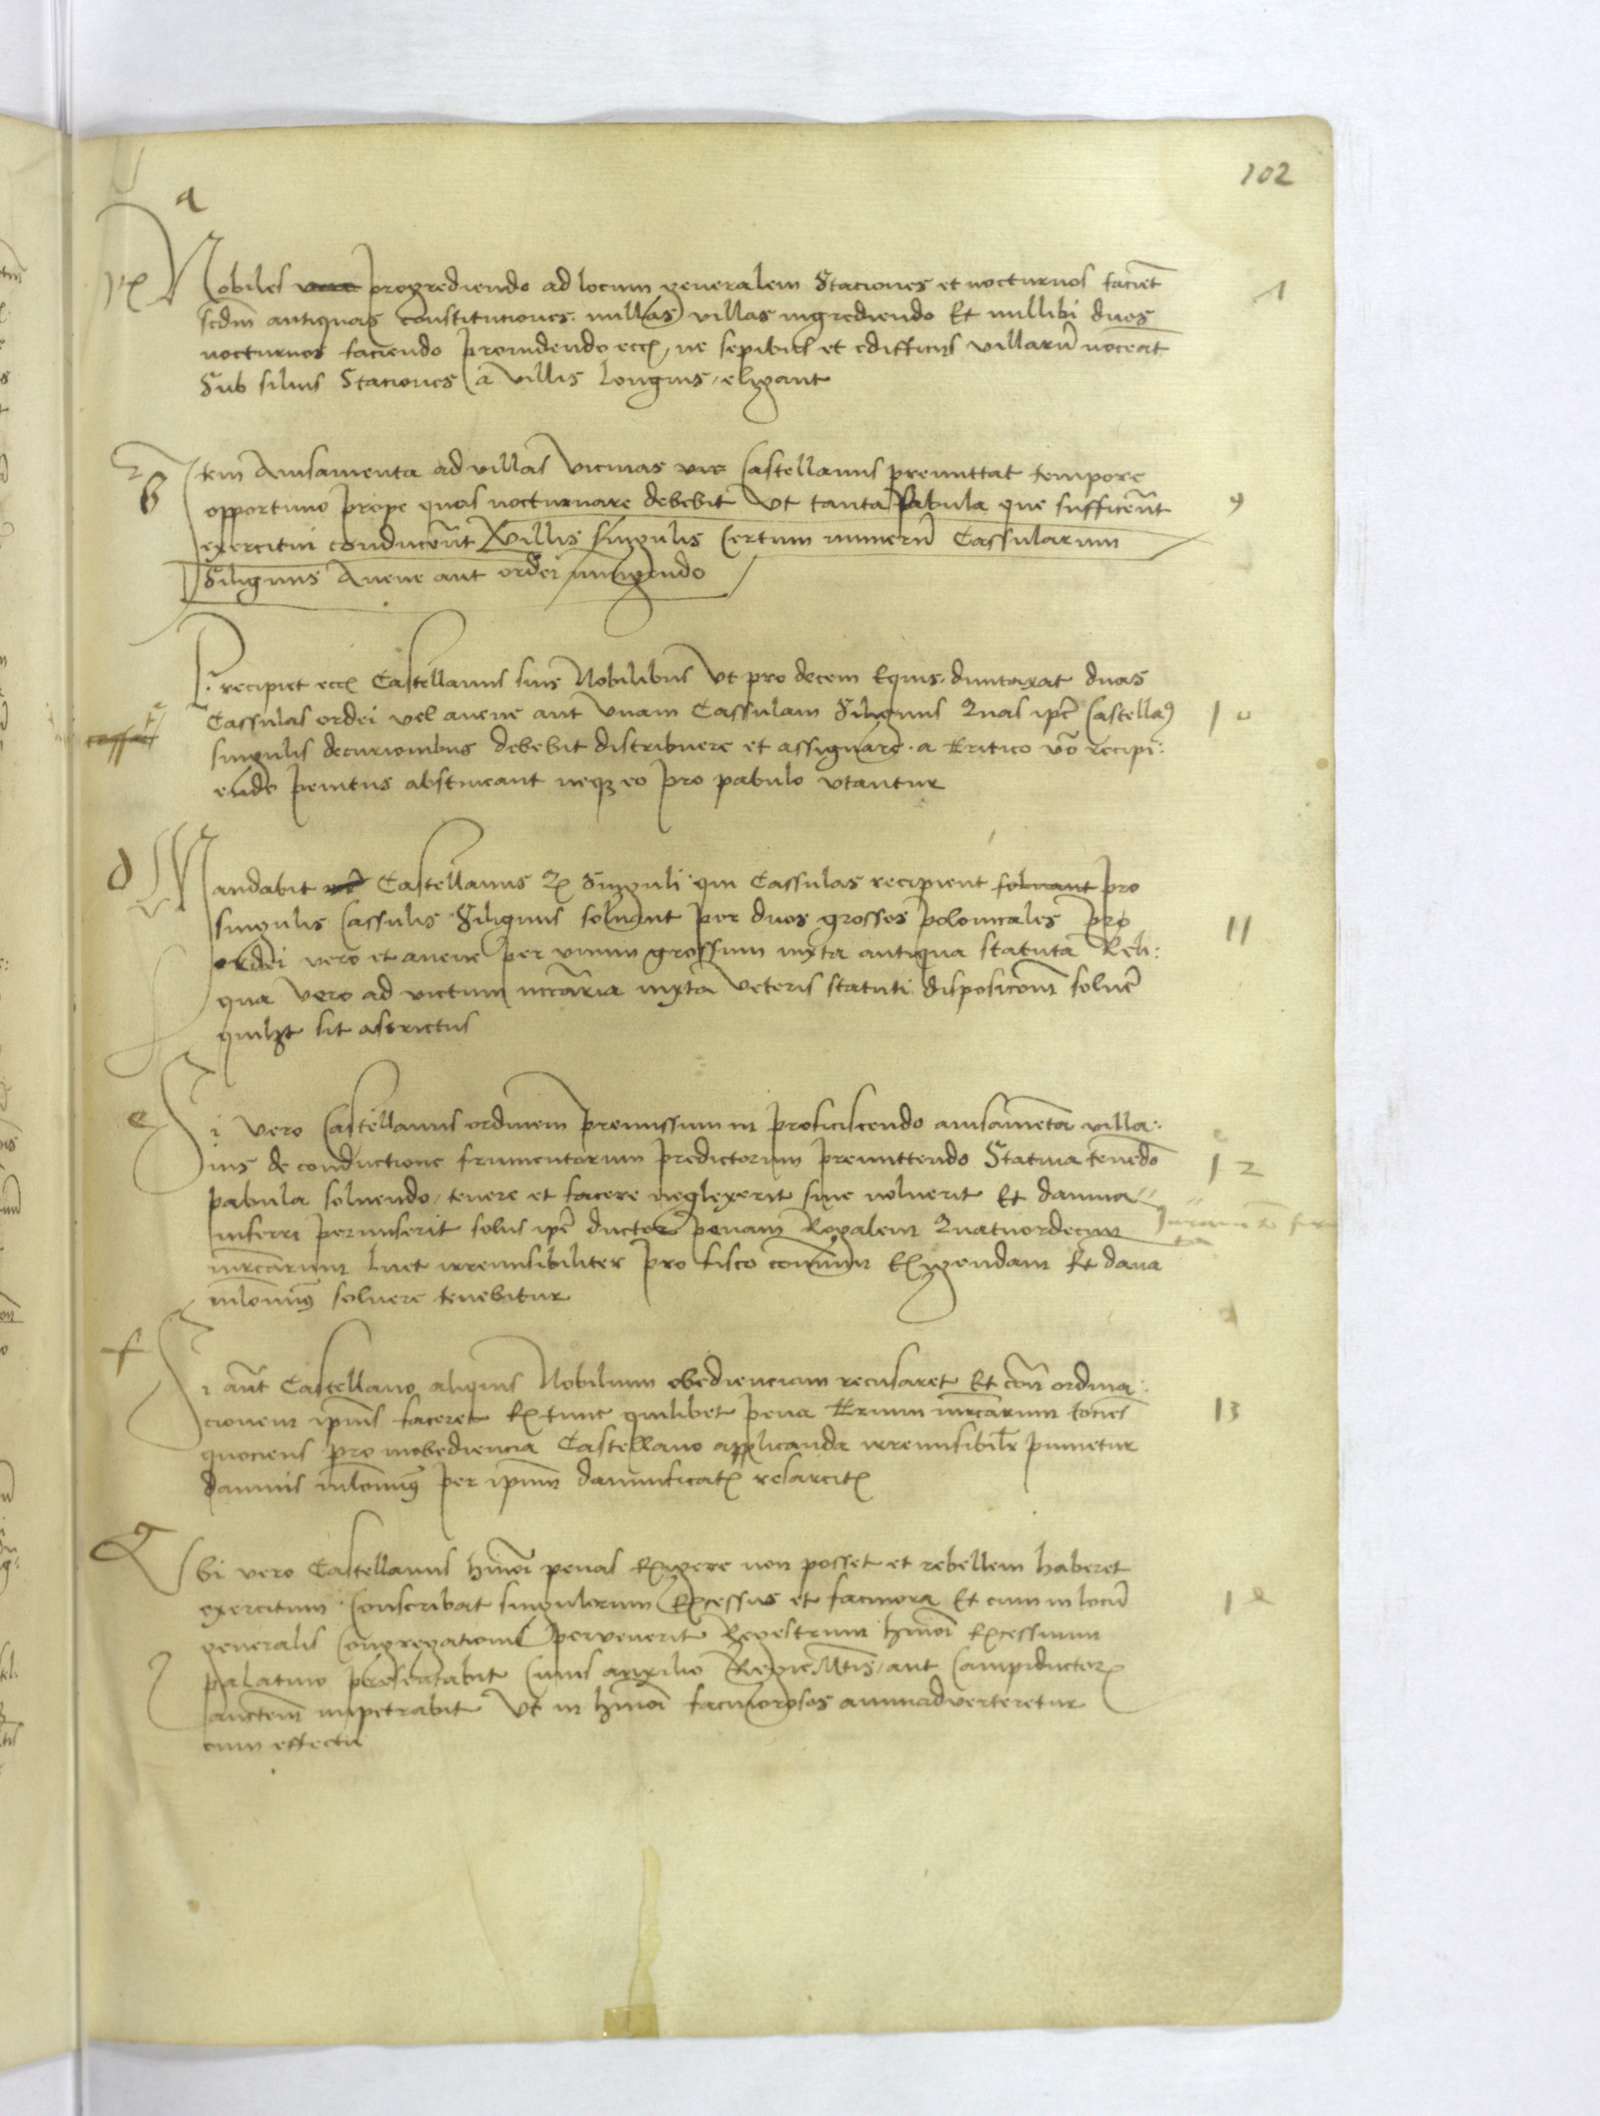 102
a
Nobiles vero progrediendo ad locum generalem Staciones et nocturnos faciēt
scdm antiquas constitutiones nullas villas ingrediendo Et nullibi duos
nocturnos faciendo prouidendo ne sepibus et edifficijs villarū noceāt
Sub siluis Staciones a villis longius eligant
1
b
Itm Auisamenta ad villas vicinas Castellanus premittat tempore
opportuno prope quas nocturnare debebit Vt tanta pabula que sufficerēt
exercitui conducerēt Villis singulis Certum numerū Cassularum
Siliginis Auene aut ordei iniungendo
9
Precipiet Castellanus suis Nobilibus Vt pro decem Equis duntaxat duas
Cassulas ordei vel auene aut Vnam Cassulam Siliginis Quas ipē Castellan9
singulis decurionibus debebit distribuere et assignare a tritico vō recipi:
endo penitus abstineant neq3 eo pro pabulo vtantur
10
d
Mandabit Castellanus Singuli qui Cassulas recipient soluant pro
singulis Cassulis Siliginis soluant per duos grossos polonicales pro
ordei vero et auene per vnum grossum iuxta antiqua statuta Reli:
qua vero ad victum nccāria iuxta veteris statuti disposicōem soluēr
quilz3t sit astrictus
11
e
Si vero Castellanus ordinem premissum in proficiscendo auisamēta villa:
nis de conductione frumentorum predictorum premittendo Statiua tenēdo
pabula soluendo tenere et facere neglexerit siue noluerit Et damna
inferri permiserit solus ipē ductor penam Regalem Quatuordecim
mrcarum luet irremisibiliter pro fisco Exigendam Et dana
nilomin9 soluere tenebitur
12
f
Si aūt Castellano aliquis Nobilium obedienciam recusaret Et cōn ordina:
cionem ipius faceret Ex tunc quilibet pena trium mrcarum tocies
quociens pro inobediencia Castellano applicanda irremisibilr punietur
damnis nilomin9 per ipum damnificatꝭ resarcitꝭ
13
Vbi vero Castellanus hmōi penas Exigere non posset et rebellem haberet
exercitum Conscribat singulorum Excessus et facinora Et cum in locū
generalis Congregationis pervenerit Regestrum hmōi Excessuum
palatino presentabit Cuius auxilio Regie Mtis aut Campiductorꝭ
auctem impetrabit Vt in hmōi facinorosos animadverteretur
cum effectu